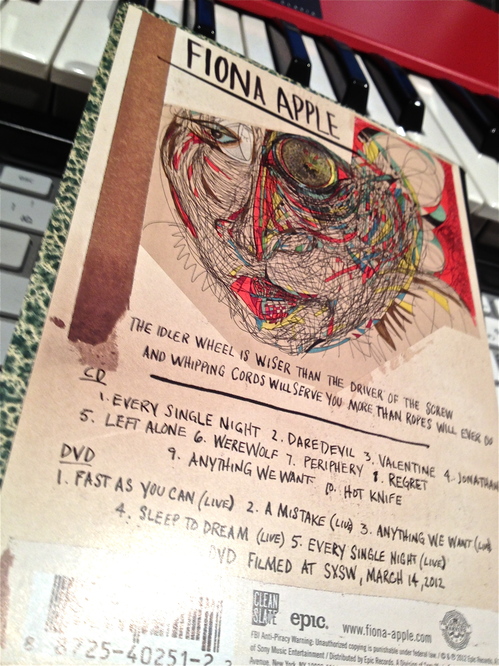 FIONA APPLE
THE IDLER WHEEL IS WISER THAN THE DRIVER OF THE SCREW
AND WHIPPING CORDS WILL SERVE YOU MORE THAN ROPES WILL EVER DO
CD
1. EVERY SINGLE NIGHT 2. DAREDEVIL 3. VALENTINE 4. JONATHAN
5. LEFT ALONE 6. WEREWOLF 7. PERIPHERY 8. REGRET
9. ANYTHING WE WANT 10. HOT KNIFE
DVD
1. FAST AS YOU CAN (LIVE) 2. A MISTAKE (LIVE) 3. ANYTHING WE WANT (LIVE)
4. SLEEP TO DREAM (LIVE) 5. EVERY SINGLE NIGHT (LIVE)
DVD FILMED AT SXSW, MARCH 14, 2012
CLEAN SLATE
epic.
www.fiona-apple.com
FBI Anti-Piracy Warning: Unauthorized copying is punishable under federal law.
of Sony Music Entertainment / Distributed by Epic Records
Avenue, New York, NY
8 8725-40251-2